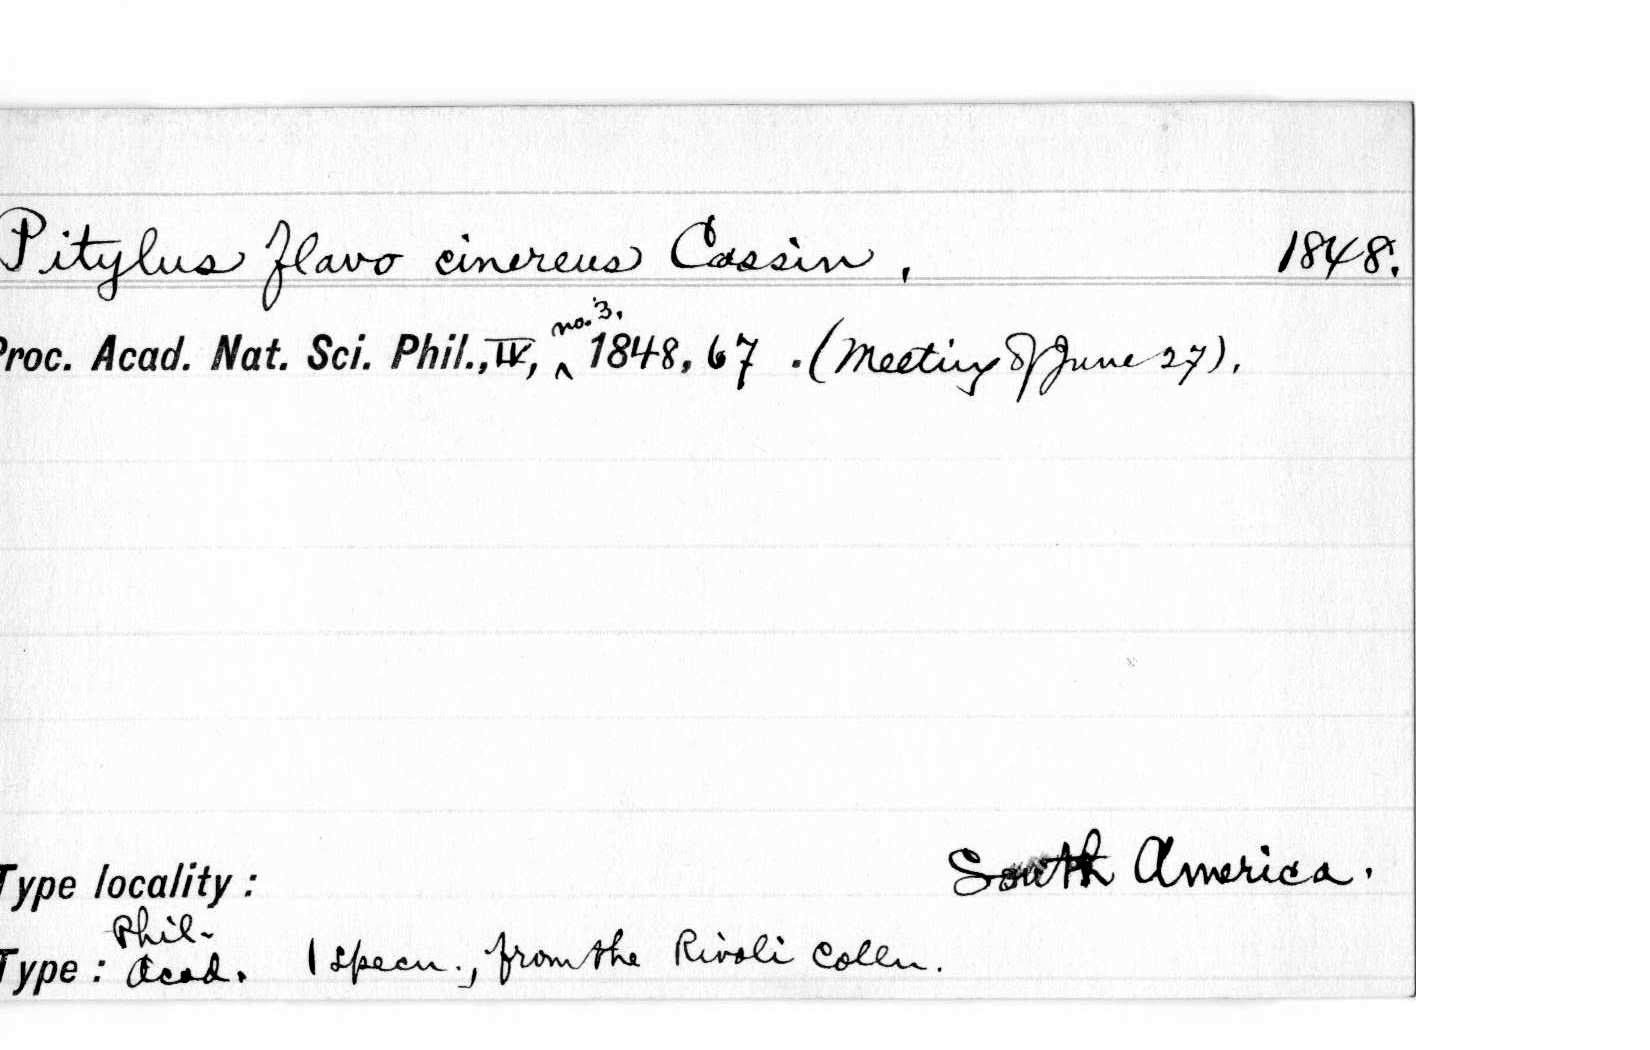 Pitylus flavo cinereus Cassin, 1848.
Proc. Acad. Nat. Sci. Phil., IV, ^ no. 3. 1848, 67 . (Meeting of June 27).
Type locality : South America.
Phil.
Type : Acad. 1 specn., from the Rivoli colln.